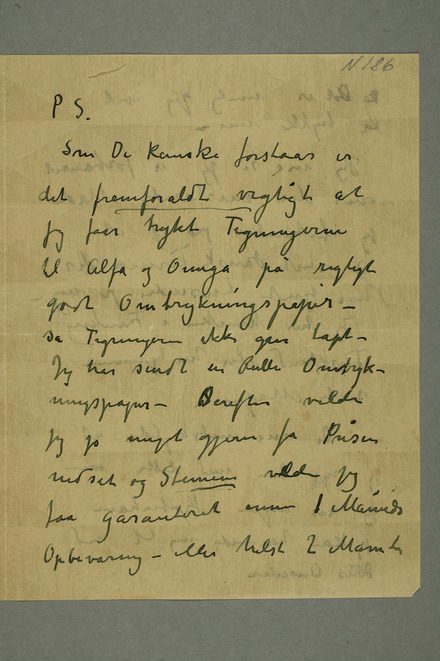 N 186
P S.
Som De kanske forstaar er
det fremforaldt vigtigt at
jeg faar trykt Tegningerne
til Alfa og Omega på rigtigt
godt Omtrykningspapir –
så Tegningerne ikke gaar tapt –
Jeg har sendt en Rulle Omtryk-
ningspapir – Derefter vilde
jeg jo meget gjerne få Prisen
nedsat og Stenene vilde jeg
faa garanteret enten 1 Måneds
Opbevaring – eller helst 2 Måneder